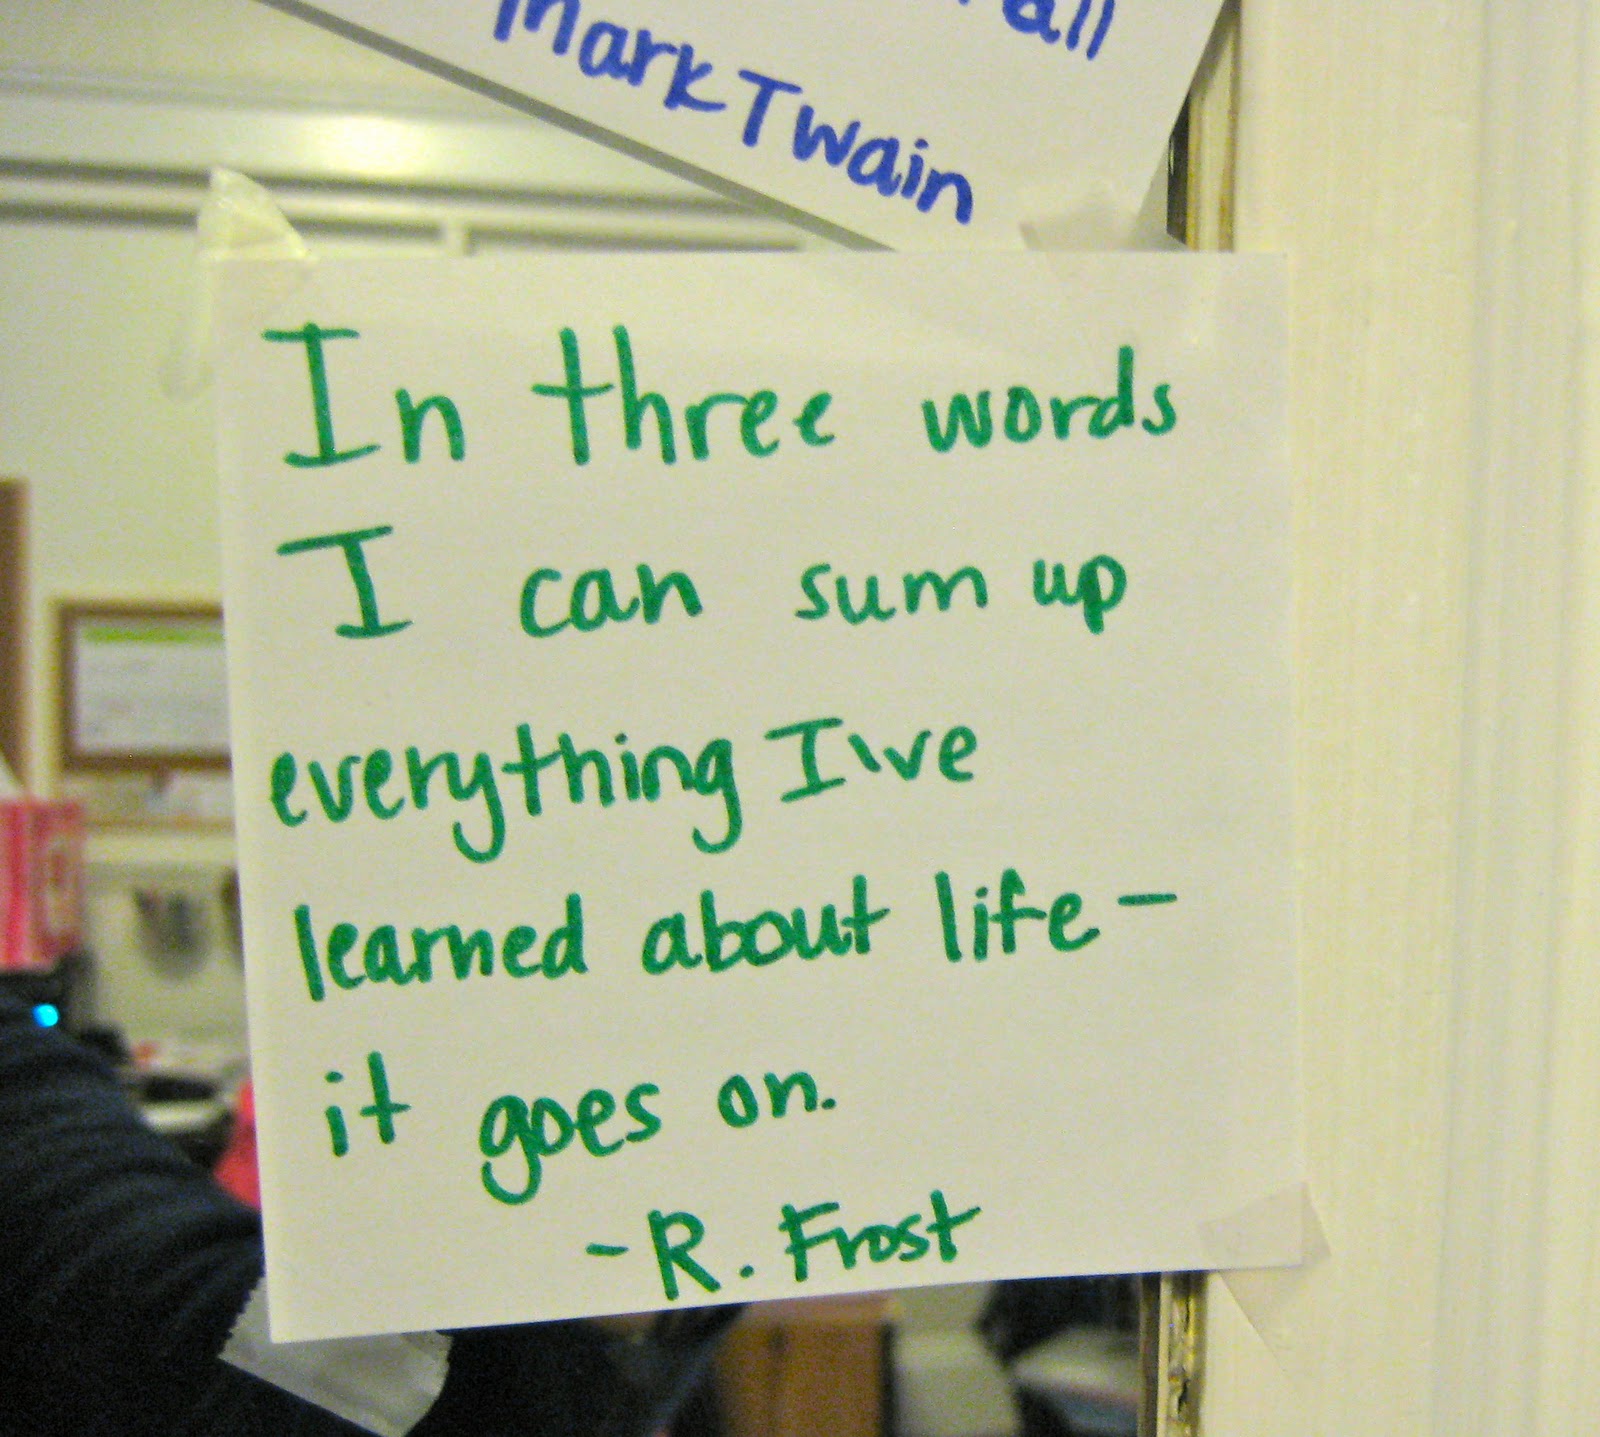 all
Mark Twain
In three words
I can sum up
everything I've
learned about life -
it goes on.
- R. Frost